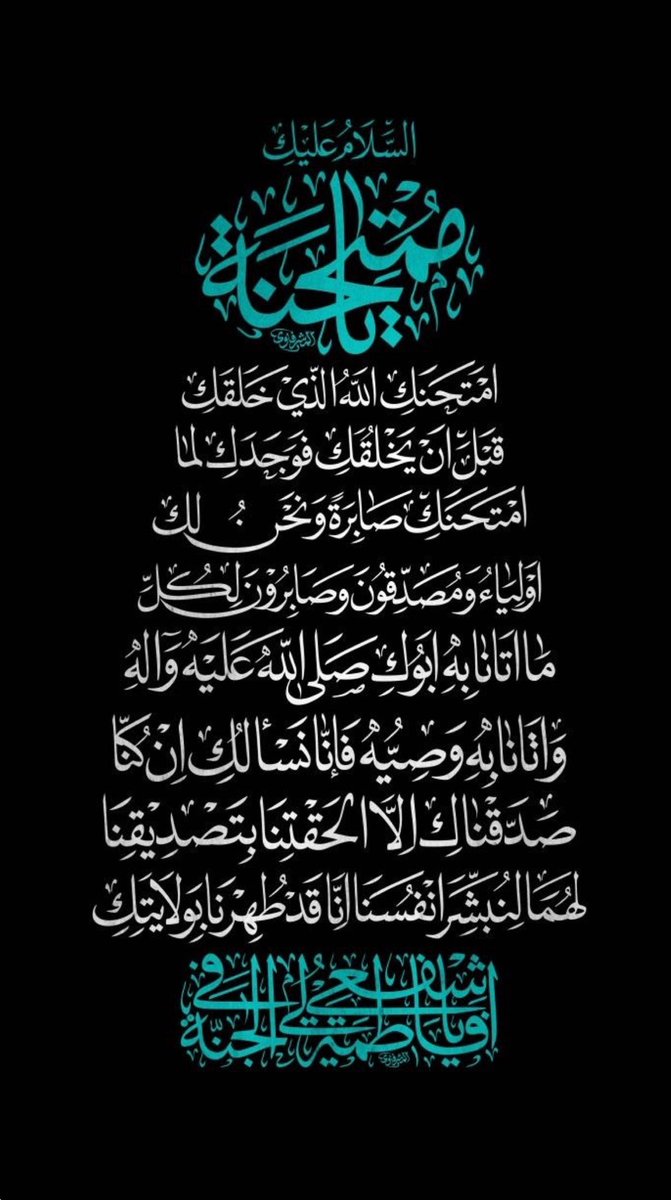 السَّلَامُ عَلَيْكِ
يَا مُمْتَحَنَةُ
امْتَحَنَكِ اللهُ الَّذِي خَلَقَكِ
قَبْلَ انْ يَخْلُقَكِ فَوَجَدَكِ لِمَا
امْتَحَنَكِ صَابِرَةً وَنَحْنُ لَكِ
اَوْلِيَاءُ وَمُصَدِّقُونَ وَصَابِرُونَ لِكُلِّ
مَا اَتَانَا بِهِ اَبُوكِ صَلَى اللّٰهُ عَلَيْهِ وَآلِهِ
وَاتَانَا بِهِ وَصِيُّهُ فَإِنَّا نَسْأَلُكِ اِنْ كُنَّا
صَدَّقْنَاكِ اِلَّا الْحَقْتِنَا بِتَصْدِيقِنَا
لَهُمَا لِنُبَشِّرَ انْفُسَنَا انَّا قَدْ طَهُرْنَا بِوَلَايَتِكِ
يا فاطمة اشفعي لي في الجنّة